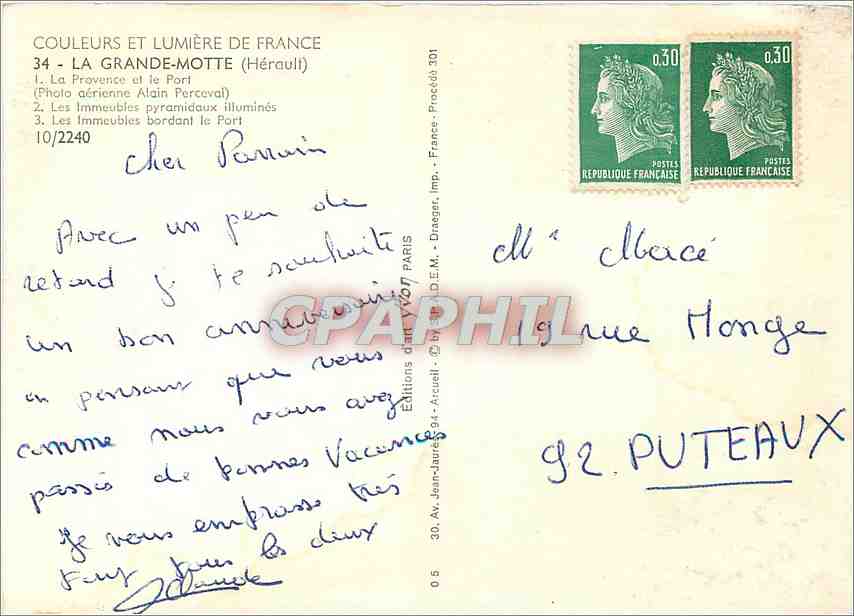 COULEURS ET LUMIÈRE DE FRANCE
34 - LA GRANDE-MOTTE (Hérault)
1. La Provence et le Port
(Photo aérienne Alain Perceval)
2. Les Immeubles pyramidaux illuminés
3. Les Immeubles bordant le Port
10/2240
Cher Parrain
Avec un peu de
retard je te souhaite
un bon anniversaire
en pensant que vous
comme nous vous avez
passés de bonnes Vacances
Je vous embrasse très
fort tous les deux
Claude
Editions d'art yvon PARIS
30, Av. Jean-Jaurès, 94 - Arcueil - © by S.P.A.D.E.M. - Draeger, Imp. - France - Procédé 301
0 5
0,30
POSTES
REPUBLIQUE FRANÇAISE
0,30
POSTES
REPUBLIQUE FRANÇAISE
Mr Macé
19 rue Monge
92. PUTEAUX
CPAPHIL